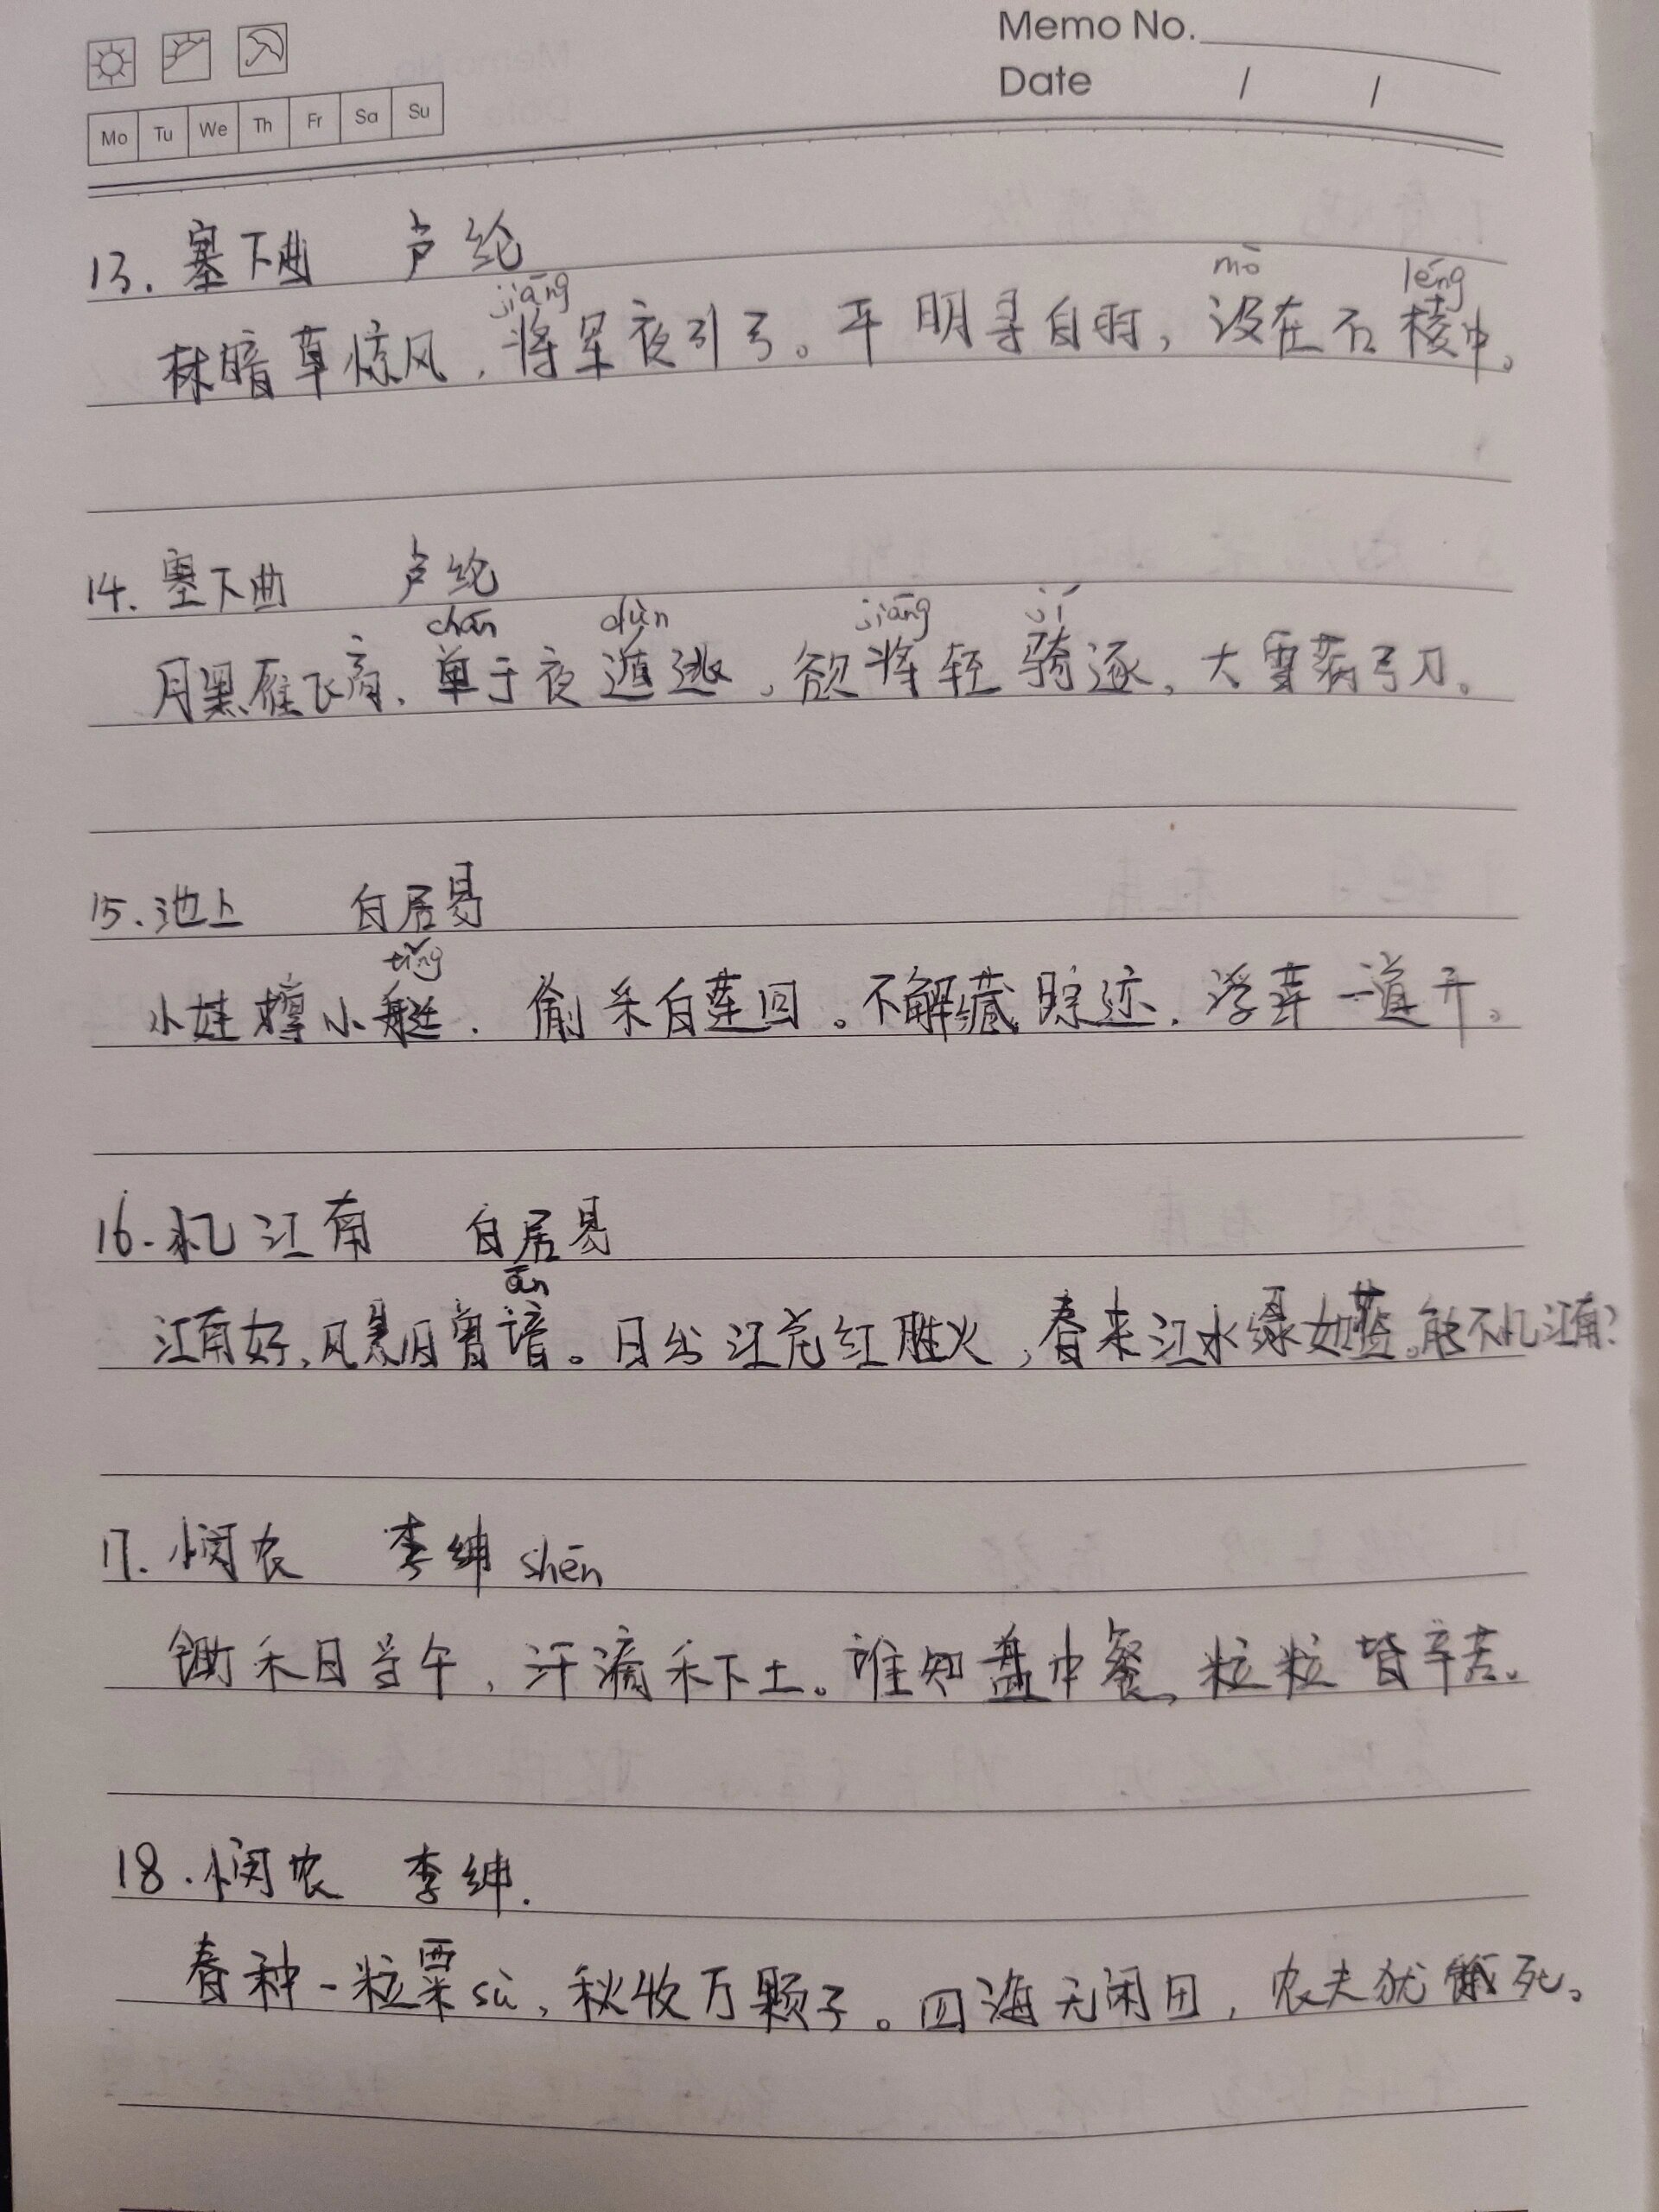 Memo No.
Date / /
Mo Tu We Th Fr Sa Su
13. 塞下曲 卢纶
jiāng mò léng
林暗草惊风，将军夜引弓。平明寻白羽，没在石棱中。
14. 塞下曲 卢纶
chán dùn jiāng jì
月黑雁飞高，单于夜遁逃，欲将轻骑逐，大雪满弓刀。
15. 池上 白居易
tǐng
小娃撑小艇，偷采白莲回。不解藏踪迹，浮萍一道开。
16. 忆江南 白居易
ān
江南好，风景旧曾谙。日出江花红胜火，春来江水绿如蓝。能不忆江南？
17. 悯农 李绅 shēn
锄禾日当午，汗滴禾下土。谁知盘中餐，粒粒皆辛苦。
18. 悯农 李绅.
春种一粒粟sù，秋收万颗子。四海无闲田，农夫犹饿死。